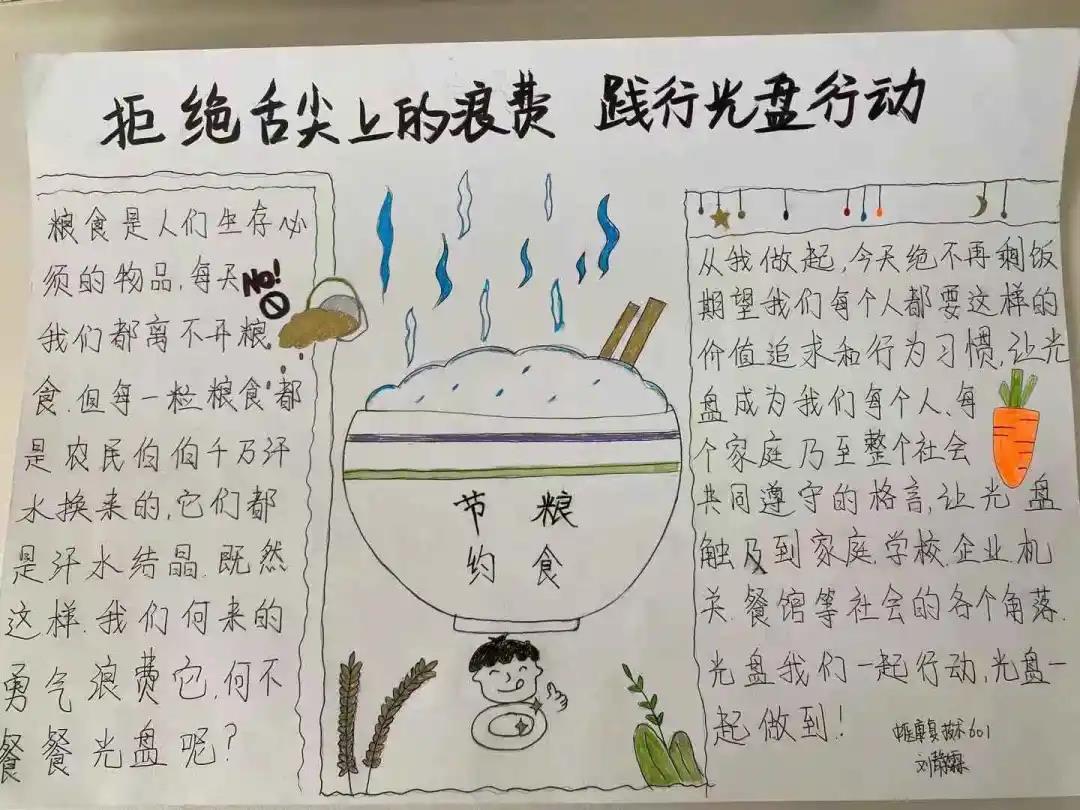 拒绝舌尖上的浪费 践行光盘行动
粮食是人们生存必
须的物品,每天
我们都离不开粮
食.但每一粒粮食都
是农民伯伯千万汗
水换来的,它们都
是汗水结晶.既然
这样.我们何来的
勇气浪费它,何不
餐餐光盘呢?
NO!
节 粮
约 食
从我做起,今天绝不再剩饭
期望我们每个人都要这样的
价值追求和行为习惯,让光
盘成为我们每个人、每
个家庭乃至整个社会
共同遵守的格言,让光盘
触及到家庭.学校.企业.机
关.餐馆等社会的各个角落.
光盘我们一起行动,光盘一
起做到!
601